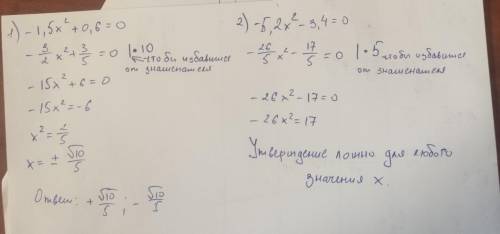 1) -1,5x² + 0,6 = 0
- 3/2 x² + 3/5 = 0 | • 10
чтоби избавится
от знаменателя
-15x² + 6 = 0
-15x² = -6
x² = 2/5
x = ± √10/5
Ответ: + √10/5 ; - √10/5
2) -5,2x² - 3,4 = 0
- 26/5 x² - 17/5 = 0 | • 5 чтоби избавится
от знаменателя
-26x² - 17 = 0
-26x² = 17
Утверждение ложно для любого
значения x.